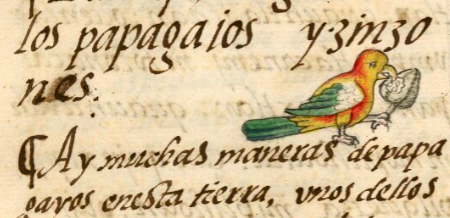 los papagaios y zinzo
nes:
¶ Ay muchas maneras de papa
gayos en esta tierra, vnos dellos